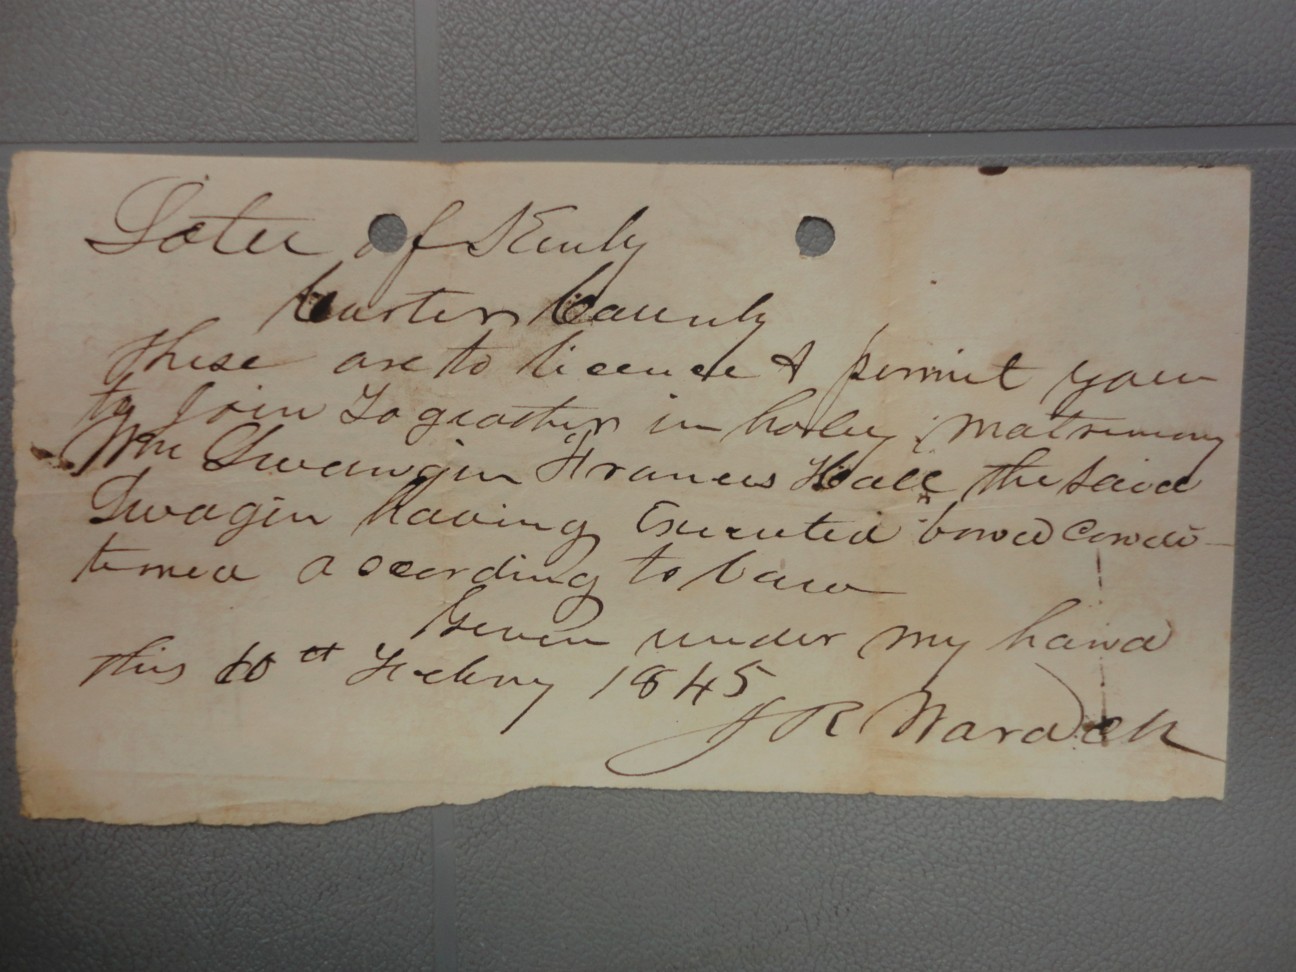 State of Kenty
Carter County
these are to licence & permit you
to Join to geather in holey matrimony
Wm Swangin Francis Hall the said
Swagin having Executed bond condi-
tioned according to law
Given under my hand
this 10th Febry 1845
J R Ward